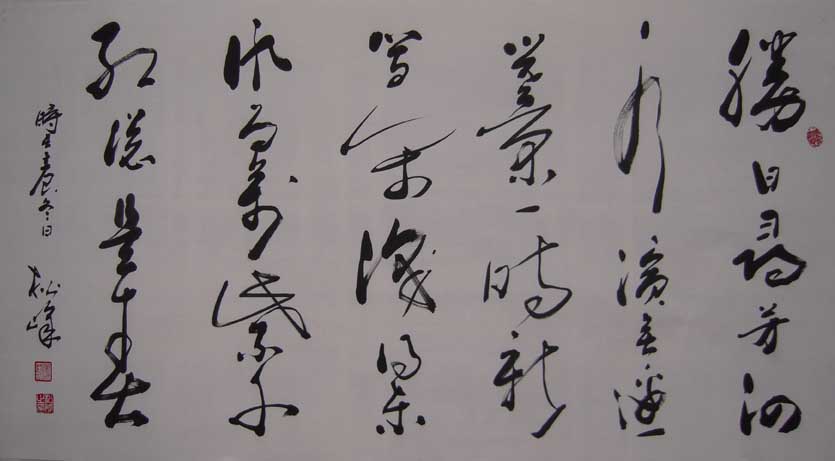 勝日尋芳泗
水濱無邊
光景一時新
等閒識得東
風面萬紫千
紅總是春
時在壬辰冬日 松峰